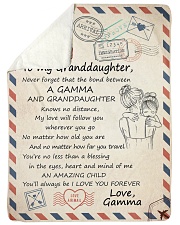 To My Granddaughter,
Never forget that the bond between
A GAMMA
AND GRANDDAUGHTER
Knows no distance,
My love will follow you
wherever you go
No matter how old you are
And no matter how far you travel
You're no less than a blessing
in the eyes, heart and mind of me
AN AMAZING CHILD
You'll always be I LOVE YOU FOREVER
Love,
Gamma